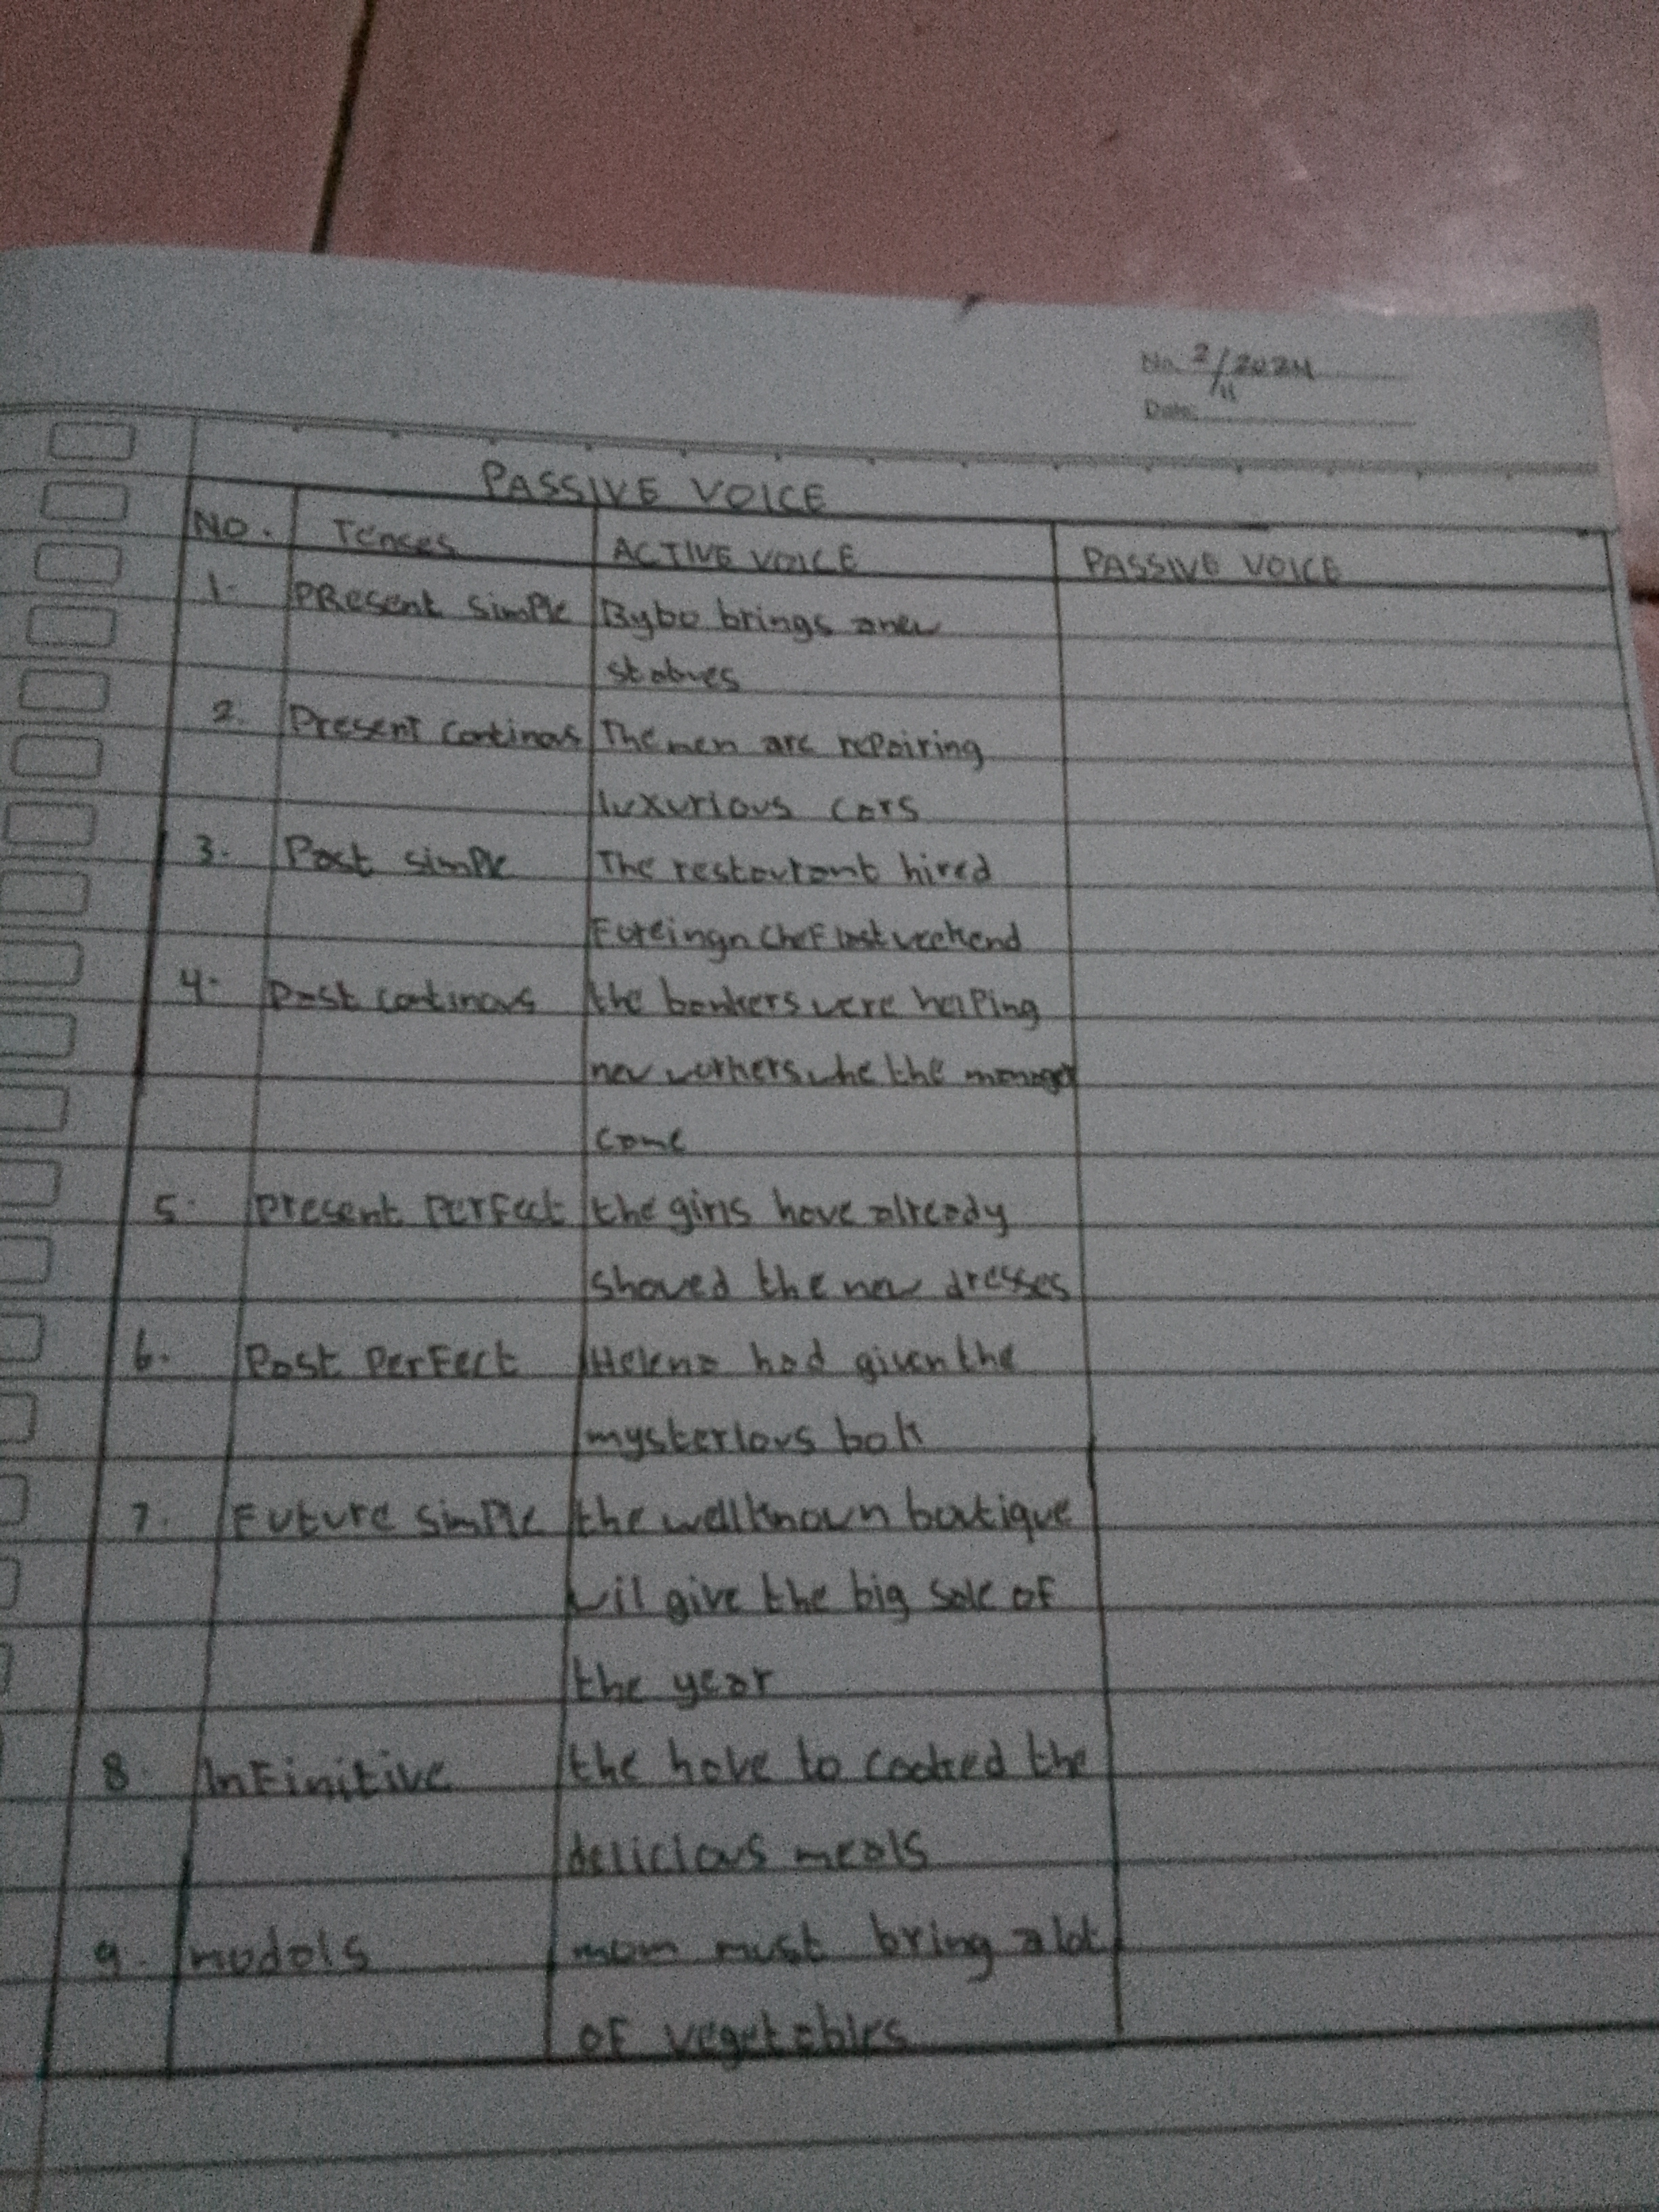 No. 2/11 2024
Date:
PASSIVE VOICE
NO. Tenses ACTIVE VOICE PASSIVE VOICE
1. PResent simple Bybo brings a new
statues
2. Present continous The men are repairing
luxurious cars
3. Past simple The restaurant hired
Foreingn chef last weekend
4. Past continous the bankers were helping
new workers whe the manager
come
5. present perfect the girls have already
showed the new dresses
6. Past perfect Helena had given the
mysterious
7. Future simple the wellknown boutique
wil give the big sale of
the year
8. InFinitive the have to cooked the
delicious meals
9. modals mom must bring a lot
of vegetables